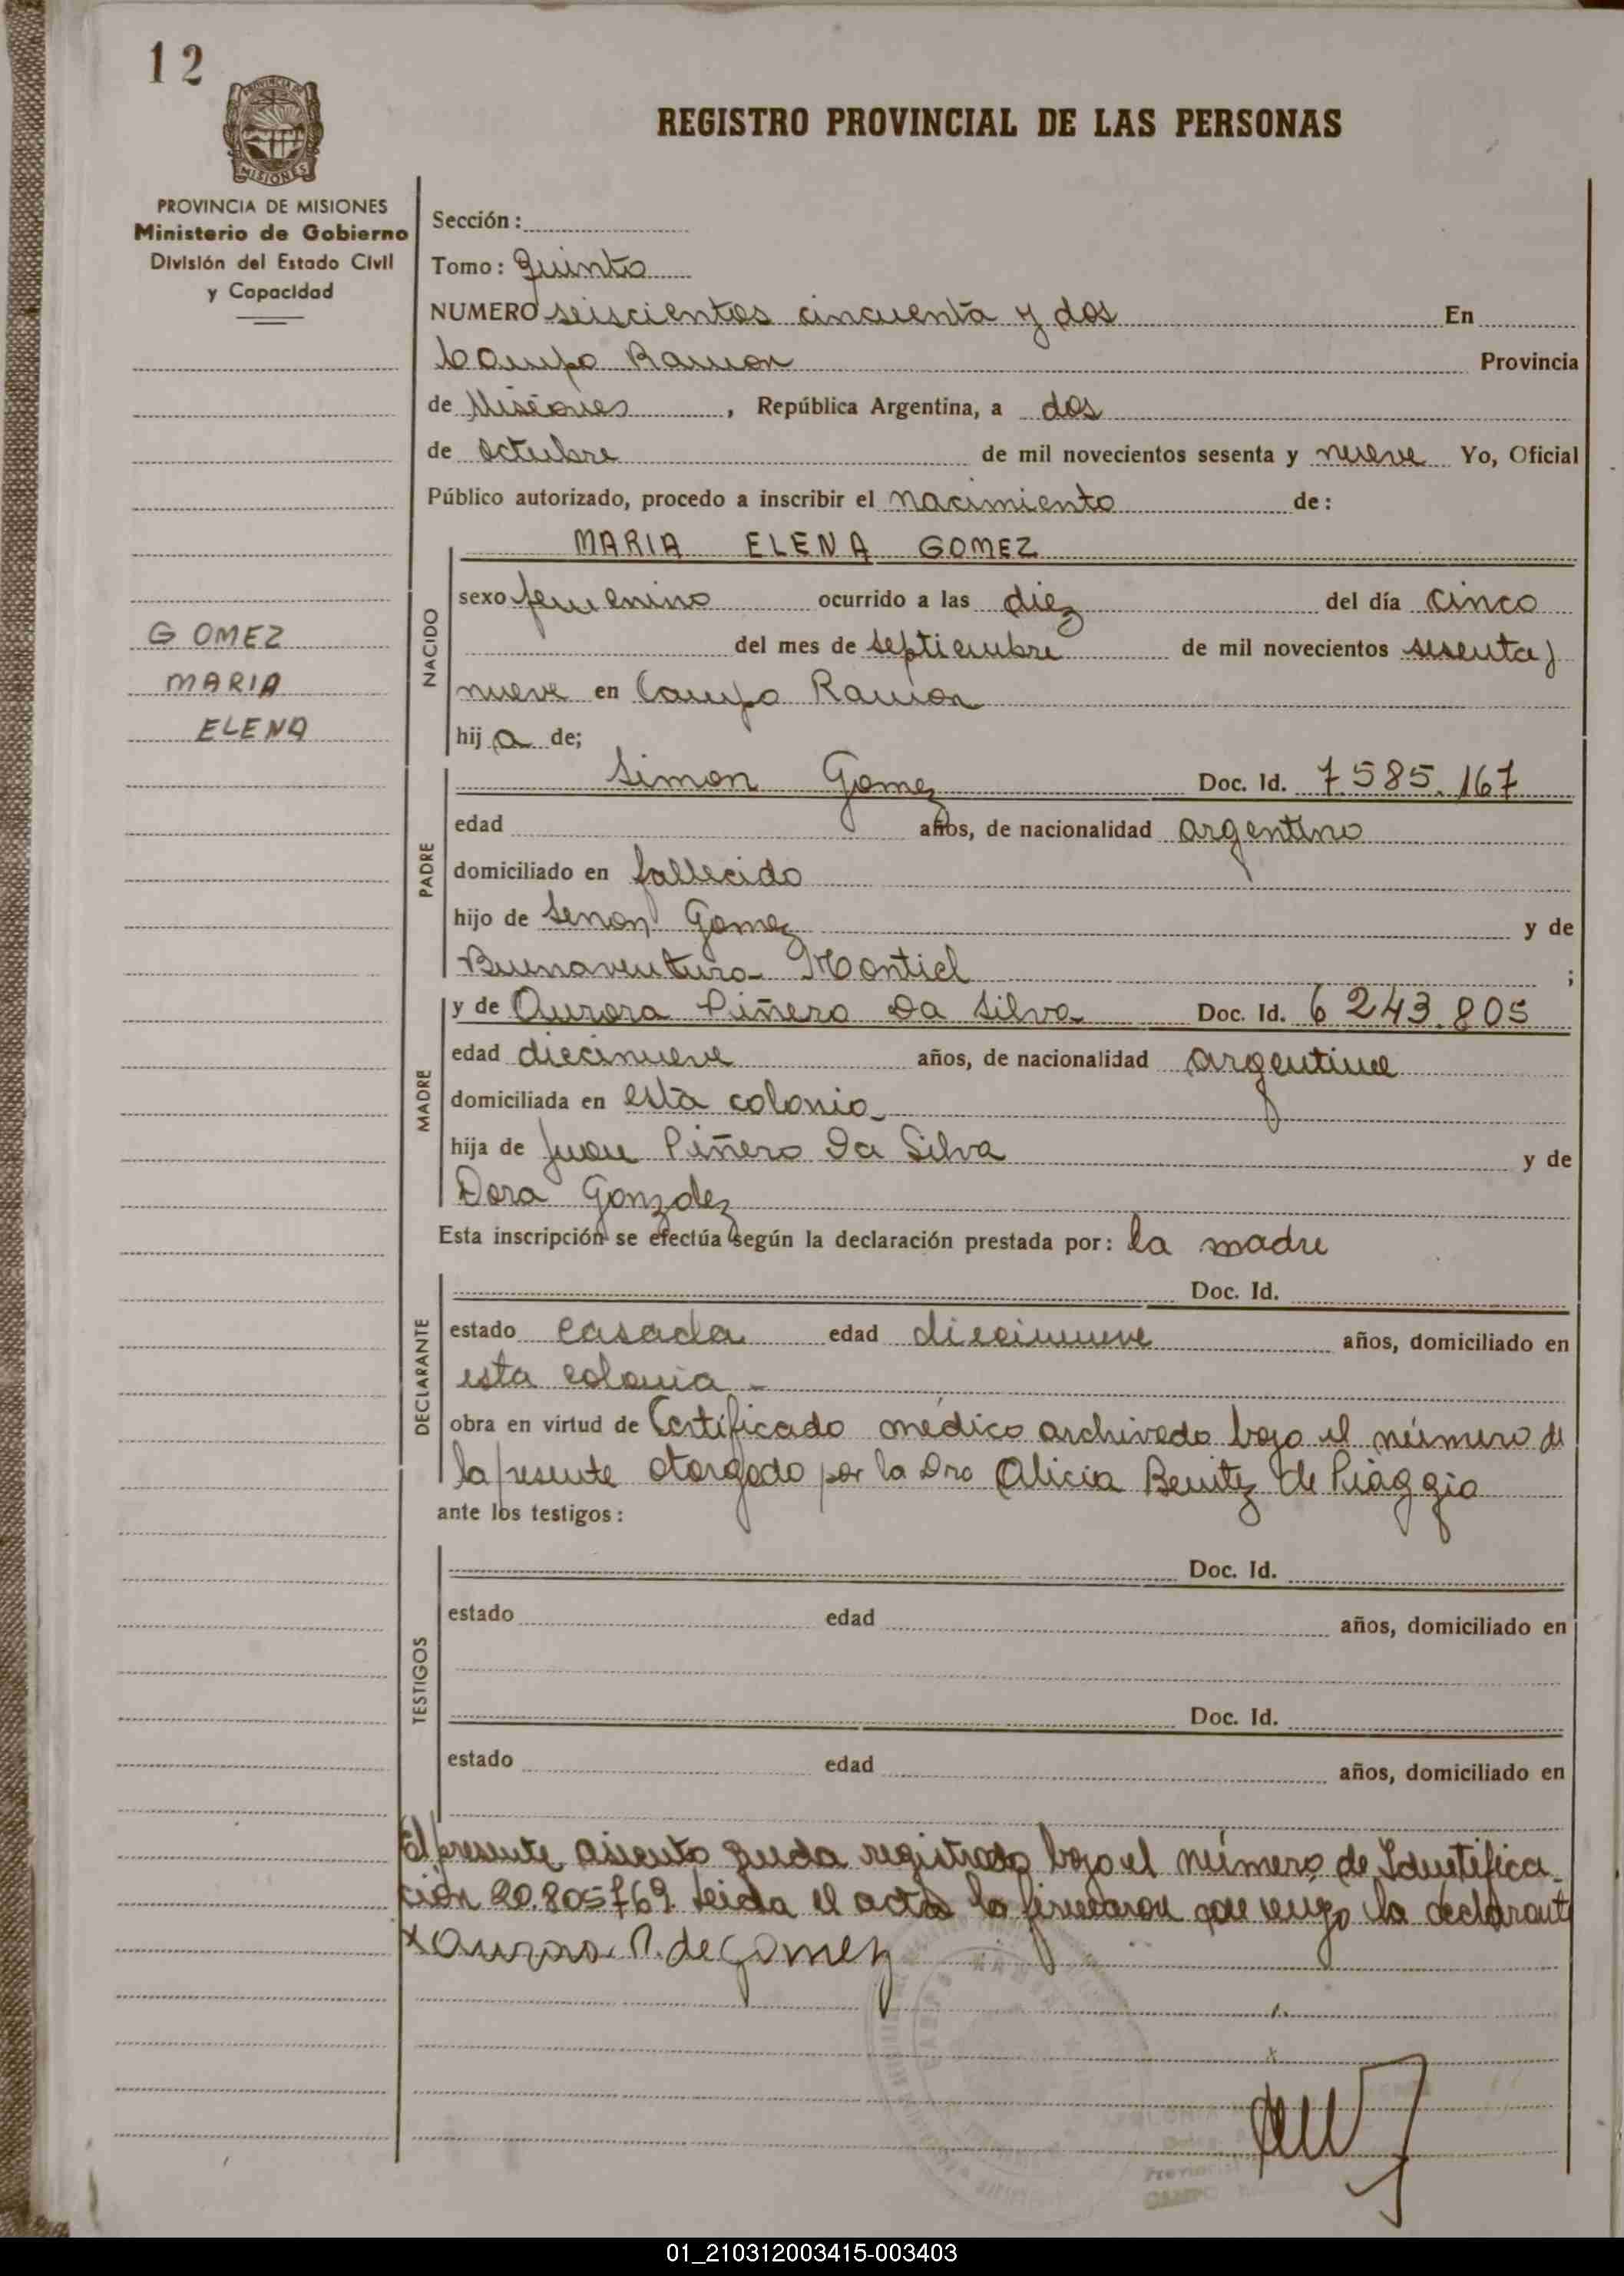 12
PROVINCIA DE MISIONES
Ministerio de Gobierno
División del Estado Civil
y Capacidad
REGISTRO PROVINCIAL DE LAS PERSONAS
Sección:
Tomo: quinto
NUMERO seiscientos cincuenta y dos En
Campo Ramon Provincia
de Misiones, República Argentina, a dos
de octubre de mil novecientos sesenta y nueve Yo, Oficial
Público autorizado, procedo a inscribir el nacimiento de:
MARIA ELENA GOMEZ
NACIDO
sexo femenino ocurrido a las diez del día cinco
del mes de septiembre de mil novecientos sesenta y
nueve en Campo Ramon
hija de;
GOMEZ
MARIA
ELENA
PADRE
Simon Gomez Doc. Id. 7585.167
edad años, de nacionalidad argentino
domiciliado en fallecido
hijo de Senon Gomez y de
Buenaventura Montiel ;
MADRE
y de Aurora Piñero Da Silva Doc. Id. 6243.805
edad diecinueve años, de nacionalidad argentina
domiciliada en esta colonia
hija de Juan Piñero Da Silva y de
Dora Gonzalez
Esta inscripción se efectúa según la declaración prestada por: la madre
DECLARANTE
Doc. Id.
estado casada edad diecinueve años, domiciliado en
esta colonia -
obra en virtud de Certificado médico archivado bajo el número de
la presente otorgado por la Dra Alicia Benitez de Piaggio
ante los testigos:
TESTIGOS
Doc. Id.
estado edad años, domiciliado en
Doc. Id.
estado edad años, domiciliado en
El presente asiento queda registrado bajo el número de Identifica
ción 20.805769. Leida el acta la firmaron conmigo la declarante
x Aurora P. de Gomez
CAMPO
01_210312003415-003403